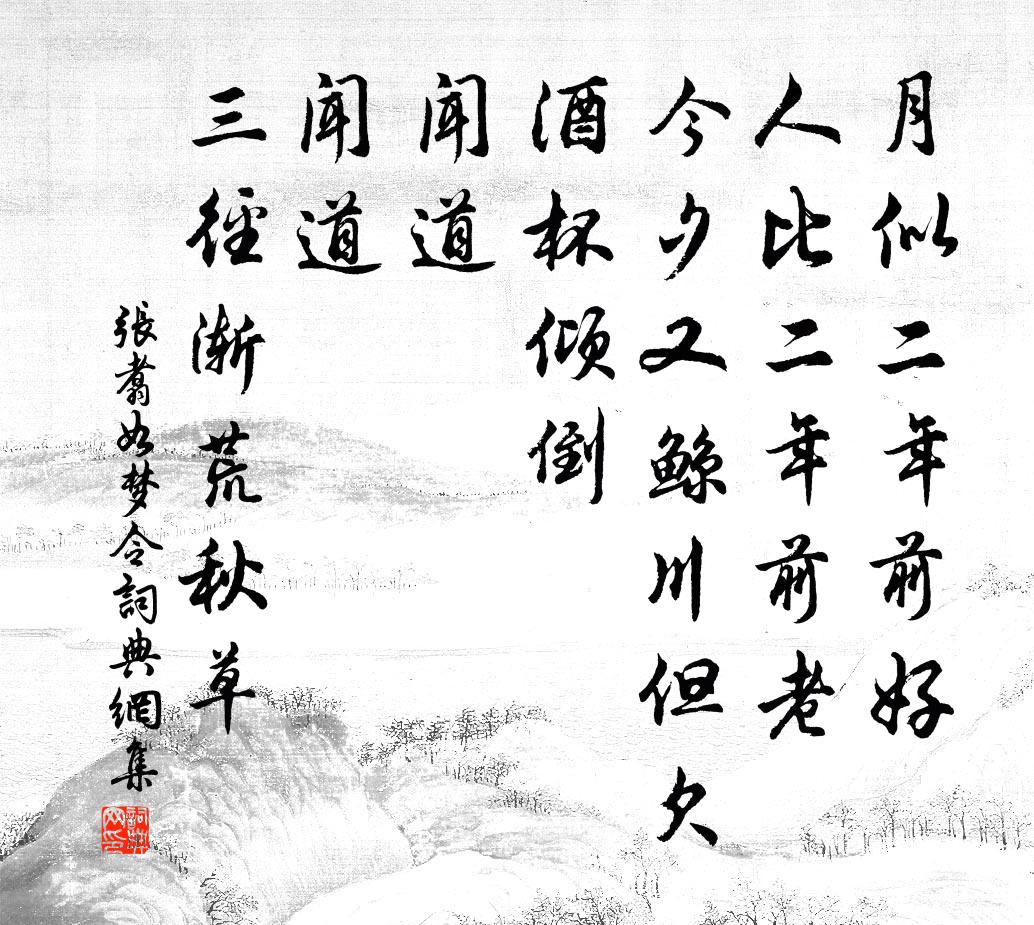 月似二年前好
人比二年前老
今夕又鲸川但欠
酒杯倾倒
闻道
闻道
三径渐荒秋草
張翥如梦令詞典網集